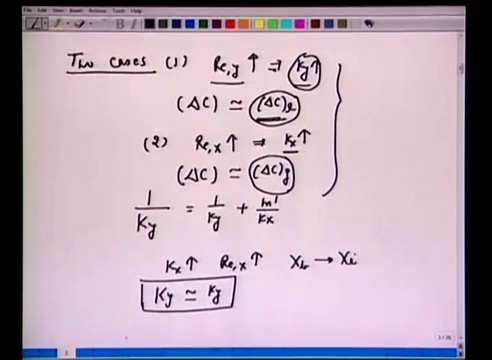 File Edit View Insert Actions Tools Help
Two cases (1) Re,y ↑ ⇒ ky↑
(ΔC) ≃ (ΔC)l
(2) Re,x ↑ ⇒ kx ↑
(ΔC) ≃ (ΔC)g
1/Ky = 1/ky + m'/kx
kx ↑ Re,x ↑ Xb → Xi
Ky ≃ ky